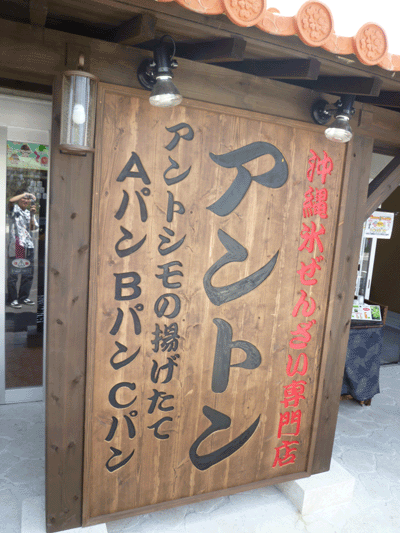 沖縄氷ぜんざい専門店
アントン
アントシモの揚げたて
Aパン Bパン Cパン